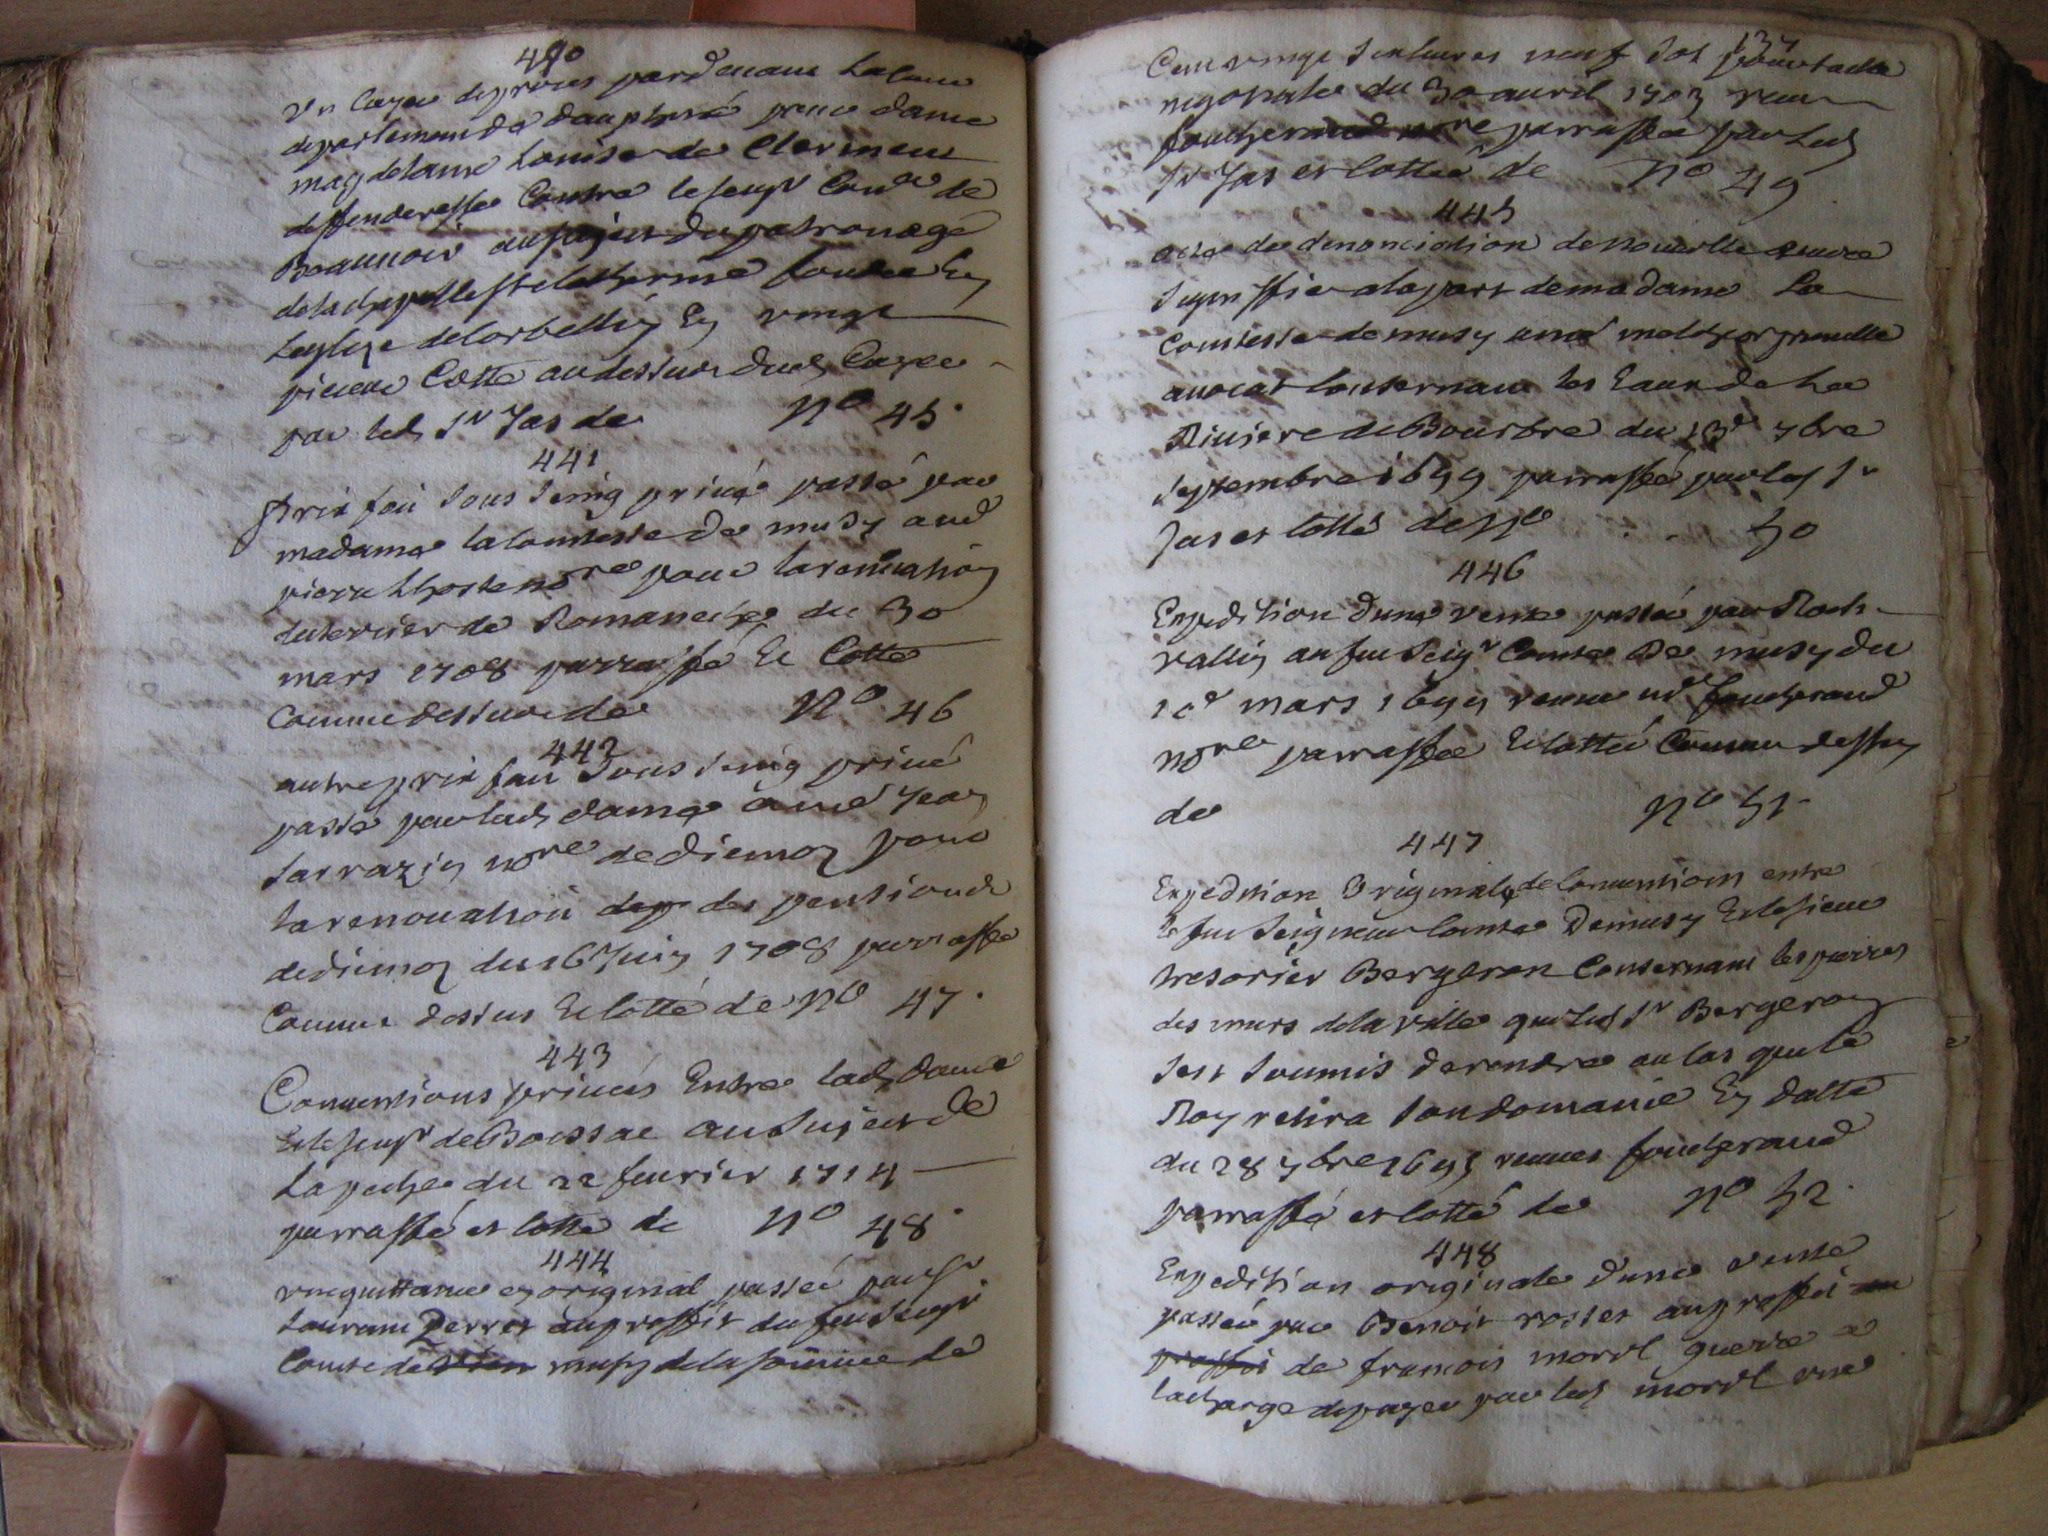 440
Un Cayer de procès pardevant la Cour
de parlement de dauphiné pour dame
magdelaine Louise de Clermont
deffenderesse Contre le seigr Comte de
Beaumois au sujet du patronage
de la chapelle ste Catherine fondée En
Leglize de Corbellin En vingt
pieces Cotté au dessus dud Cayer
par led Sr Jas de No 45.
441
Prix fait sous seing privé passé par
madame la Comtesse de musy a md
pierre nore pour la renovation
du terrier de Romaneche du 30
mars 1708 parraffé Et Cotté
Comme dessus de No 46
442
autre prix fait sous seing privé
passé par lad dame a md Jean
Sarrazin nore de diemoz pour
la renovation des pensions de
de diemoz du 16 Juin 1708 parraffé
Comme dessus Et Cotté de No 47.
443
Conventions privées Entre lad dame
Et le seigr de Boissac au sujet de
La peche du 22 fevrier 1714
parraffé et Cotté de No 48.
444
une quittance en original passée par Sr
Laurans Perret au proffit du feu seigr
Comte de musy de la somme de
137
Cent vingt sept livres neuf sols
originale du 30 avril 1703 reçue
foucherand nore parraffée par led
Sr Jas et Cottée de No 49
445
acte de denonciation de nouvelle œuvre
signiffié a la part de madame La
Comtesse de musy a md melchior
avocat Consernant les Eaux de La
Riviere de Bourbre du 13e 7bre
septembre 1699 parraffé par led Sr
Jas et Cotté de No . . 50
446
Expedition dune vente passée par Roch
vallin au feu seigr Comte De musy du
10e mars 1699 reçue md foucherand
nore parraffée Et Cotté Comme dessus
de No 51.
447
Expedition Originale de Conventions entre
le feu seigneur Comte De musy Et le sieur
tresorier Bergeron Consernant les pierres
des murs de la ville que led Sr Bergeron
sest soumis de rendre au Cas que le
Roy retira son domaine En datte
du 28 7bre 1695 reçues foucherand
parraffé et Cotté de No 52.
448
Expedition originale dune vente
passée par Benoit rosset au proffit
proffit de francois morel guerre a
la charge de payer par led morel une